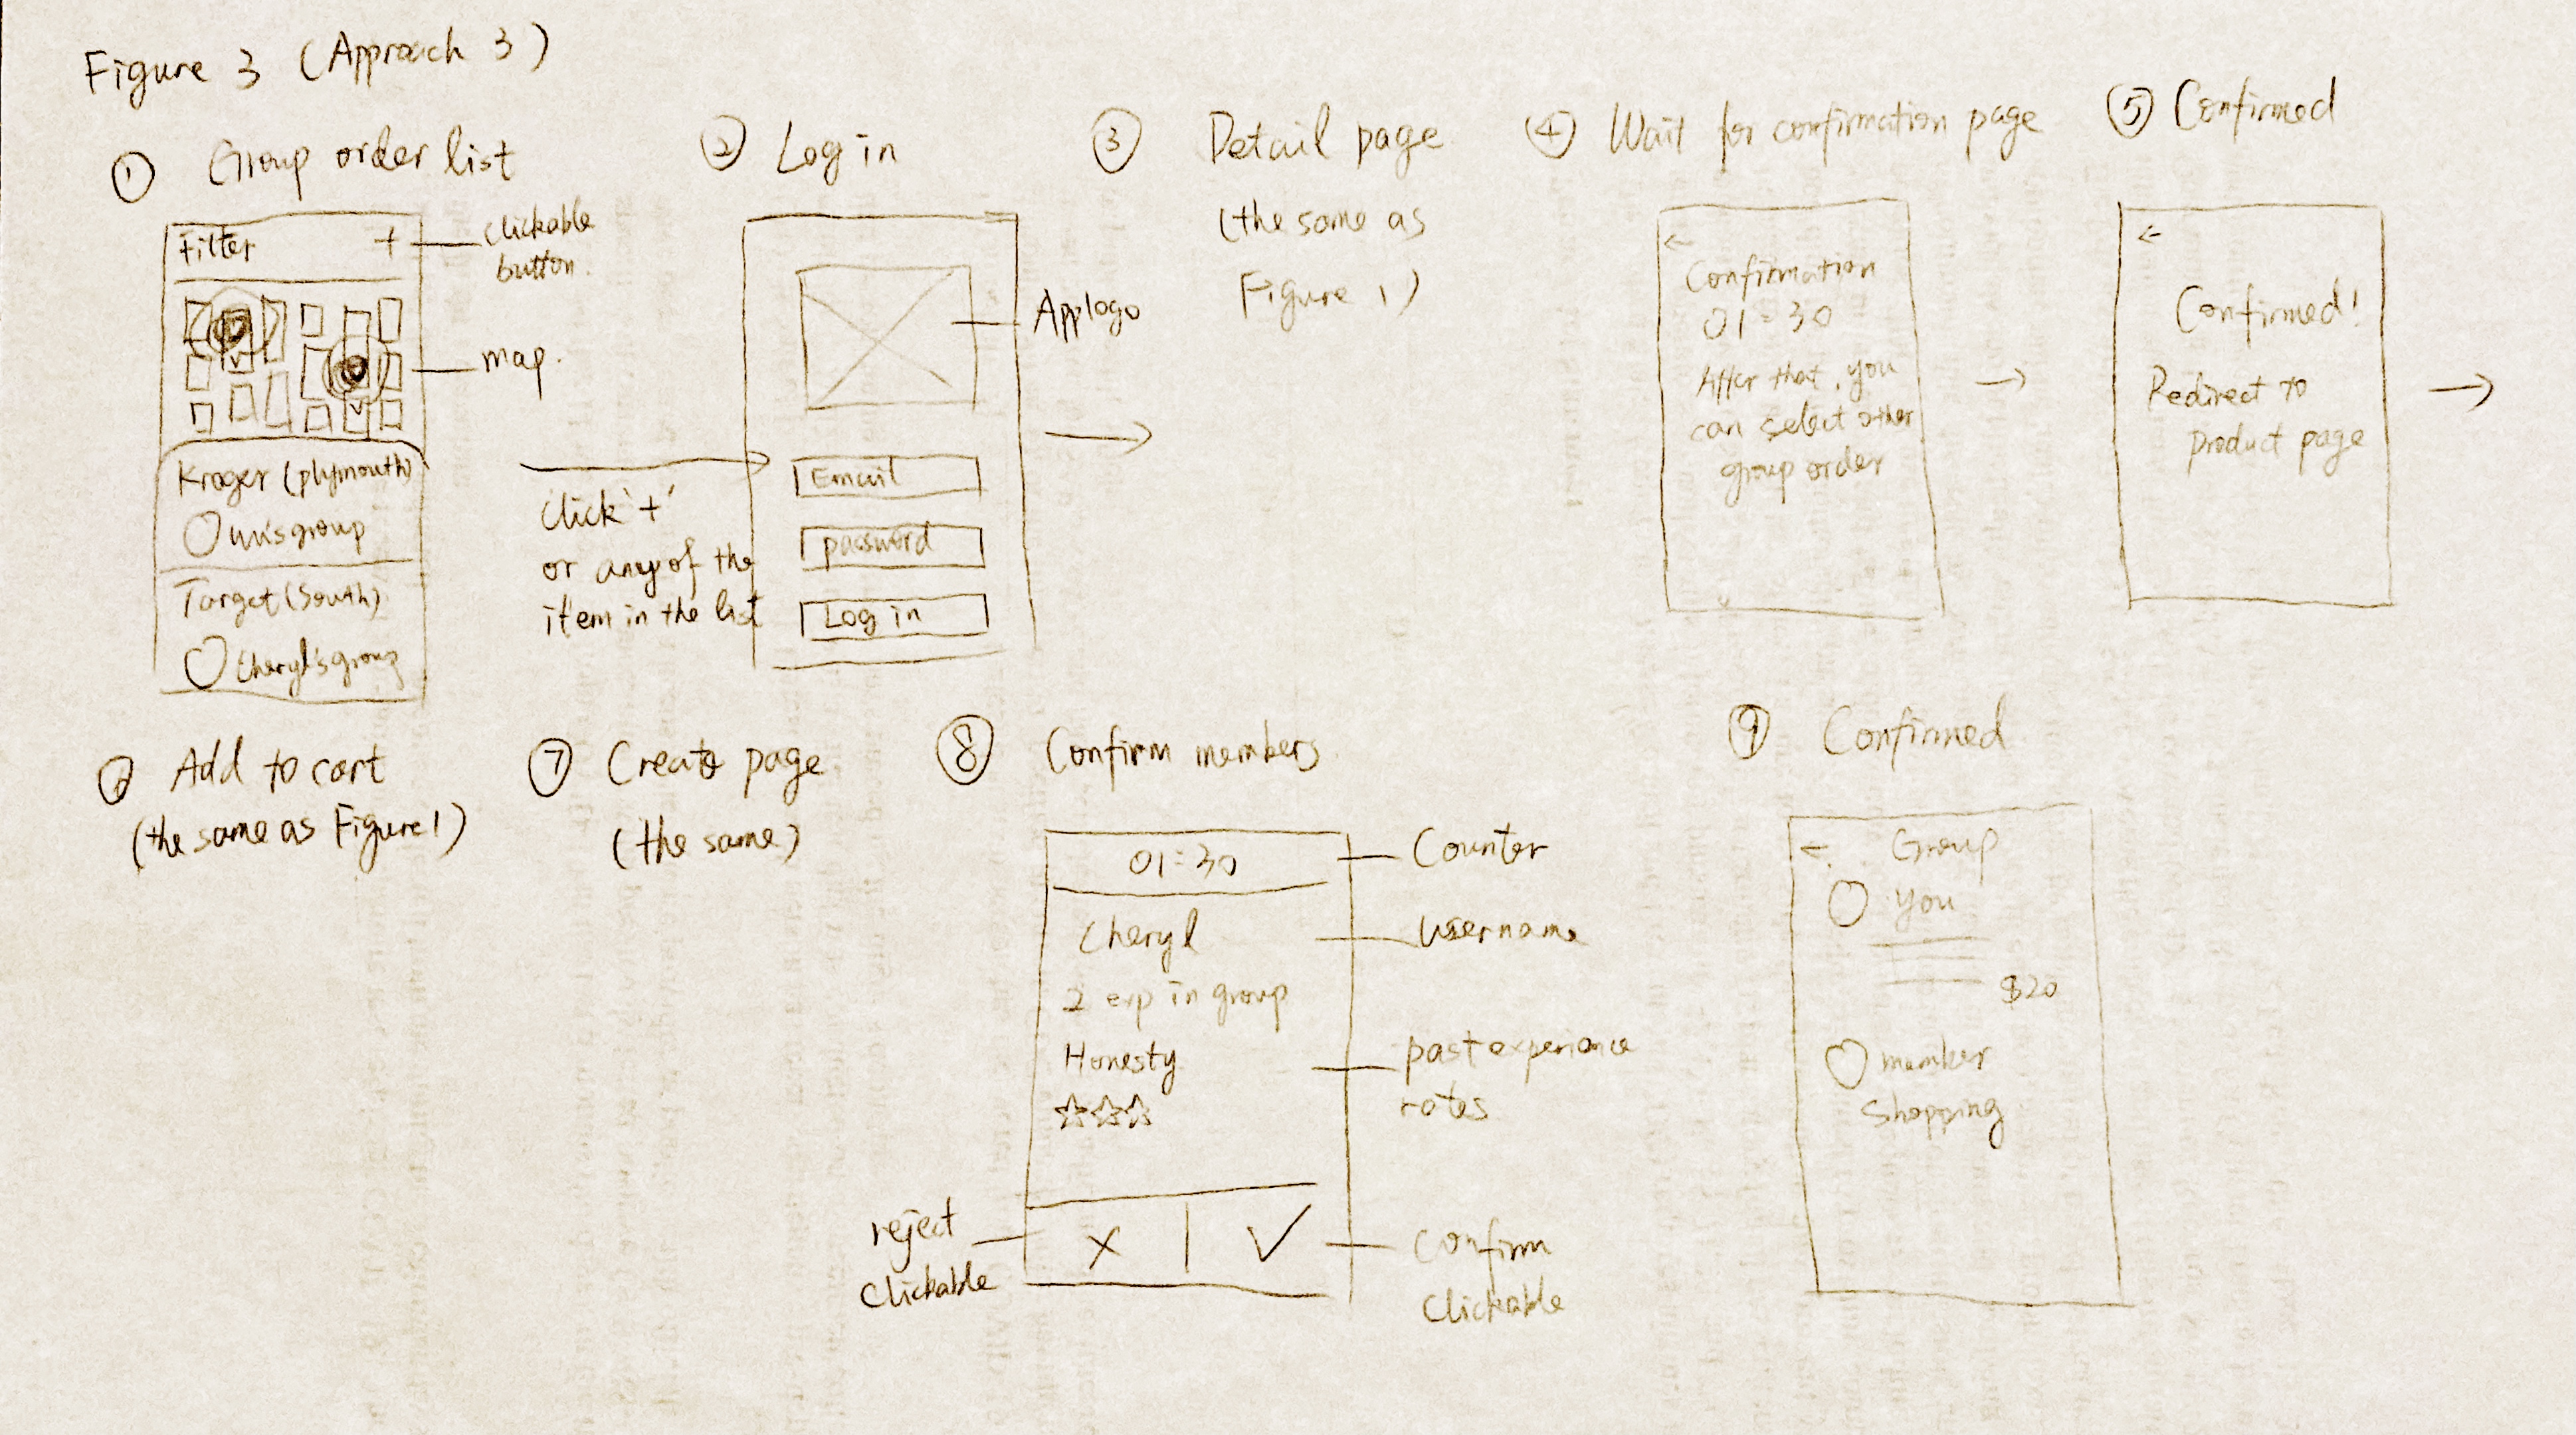 Figure 3 (Approach 3)
① Group order list
Filter +
clickable
button.
map.
Kroger (plymouth)
group
Target (South)
Cheryl's group
click '+'
or any of the
item in the list
② Log in
App logo
Email
password
Log in
③ Detail page
(the same as
Figure 1)
④ Wait for confirmation page
←
Confirmation
01:30
After that, you
can select other
group order
⑤ Confirmed
←
Confirmed!
Redirect to
product page
⑥ Add to cart
(the same as Figure 1)
⑦ Create page
(the same)
⑧ Confirm members
01:30
Counter
Cheryl
username
2 exp in group
Honesty
☆☆☆
past experience
rates
X | ✓
reject
clickable
Confirm
clickable
⑨ Confirmed
← Group
you
$20
member
shopping